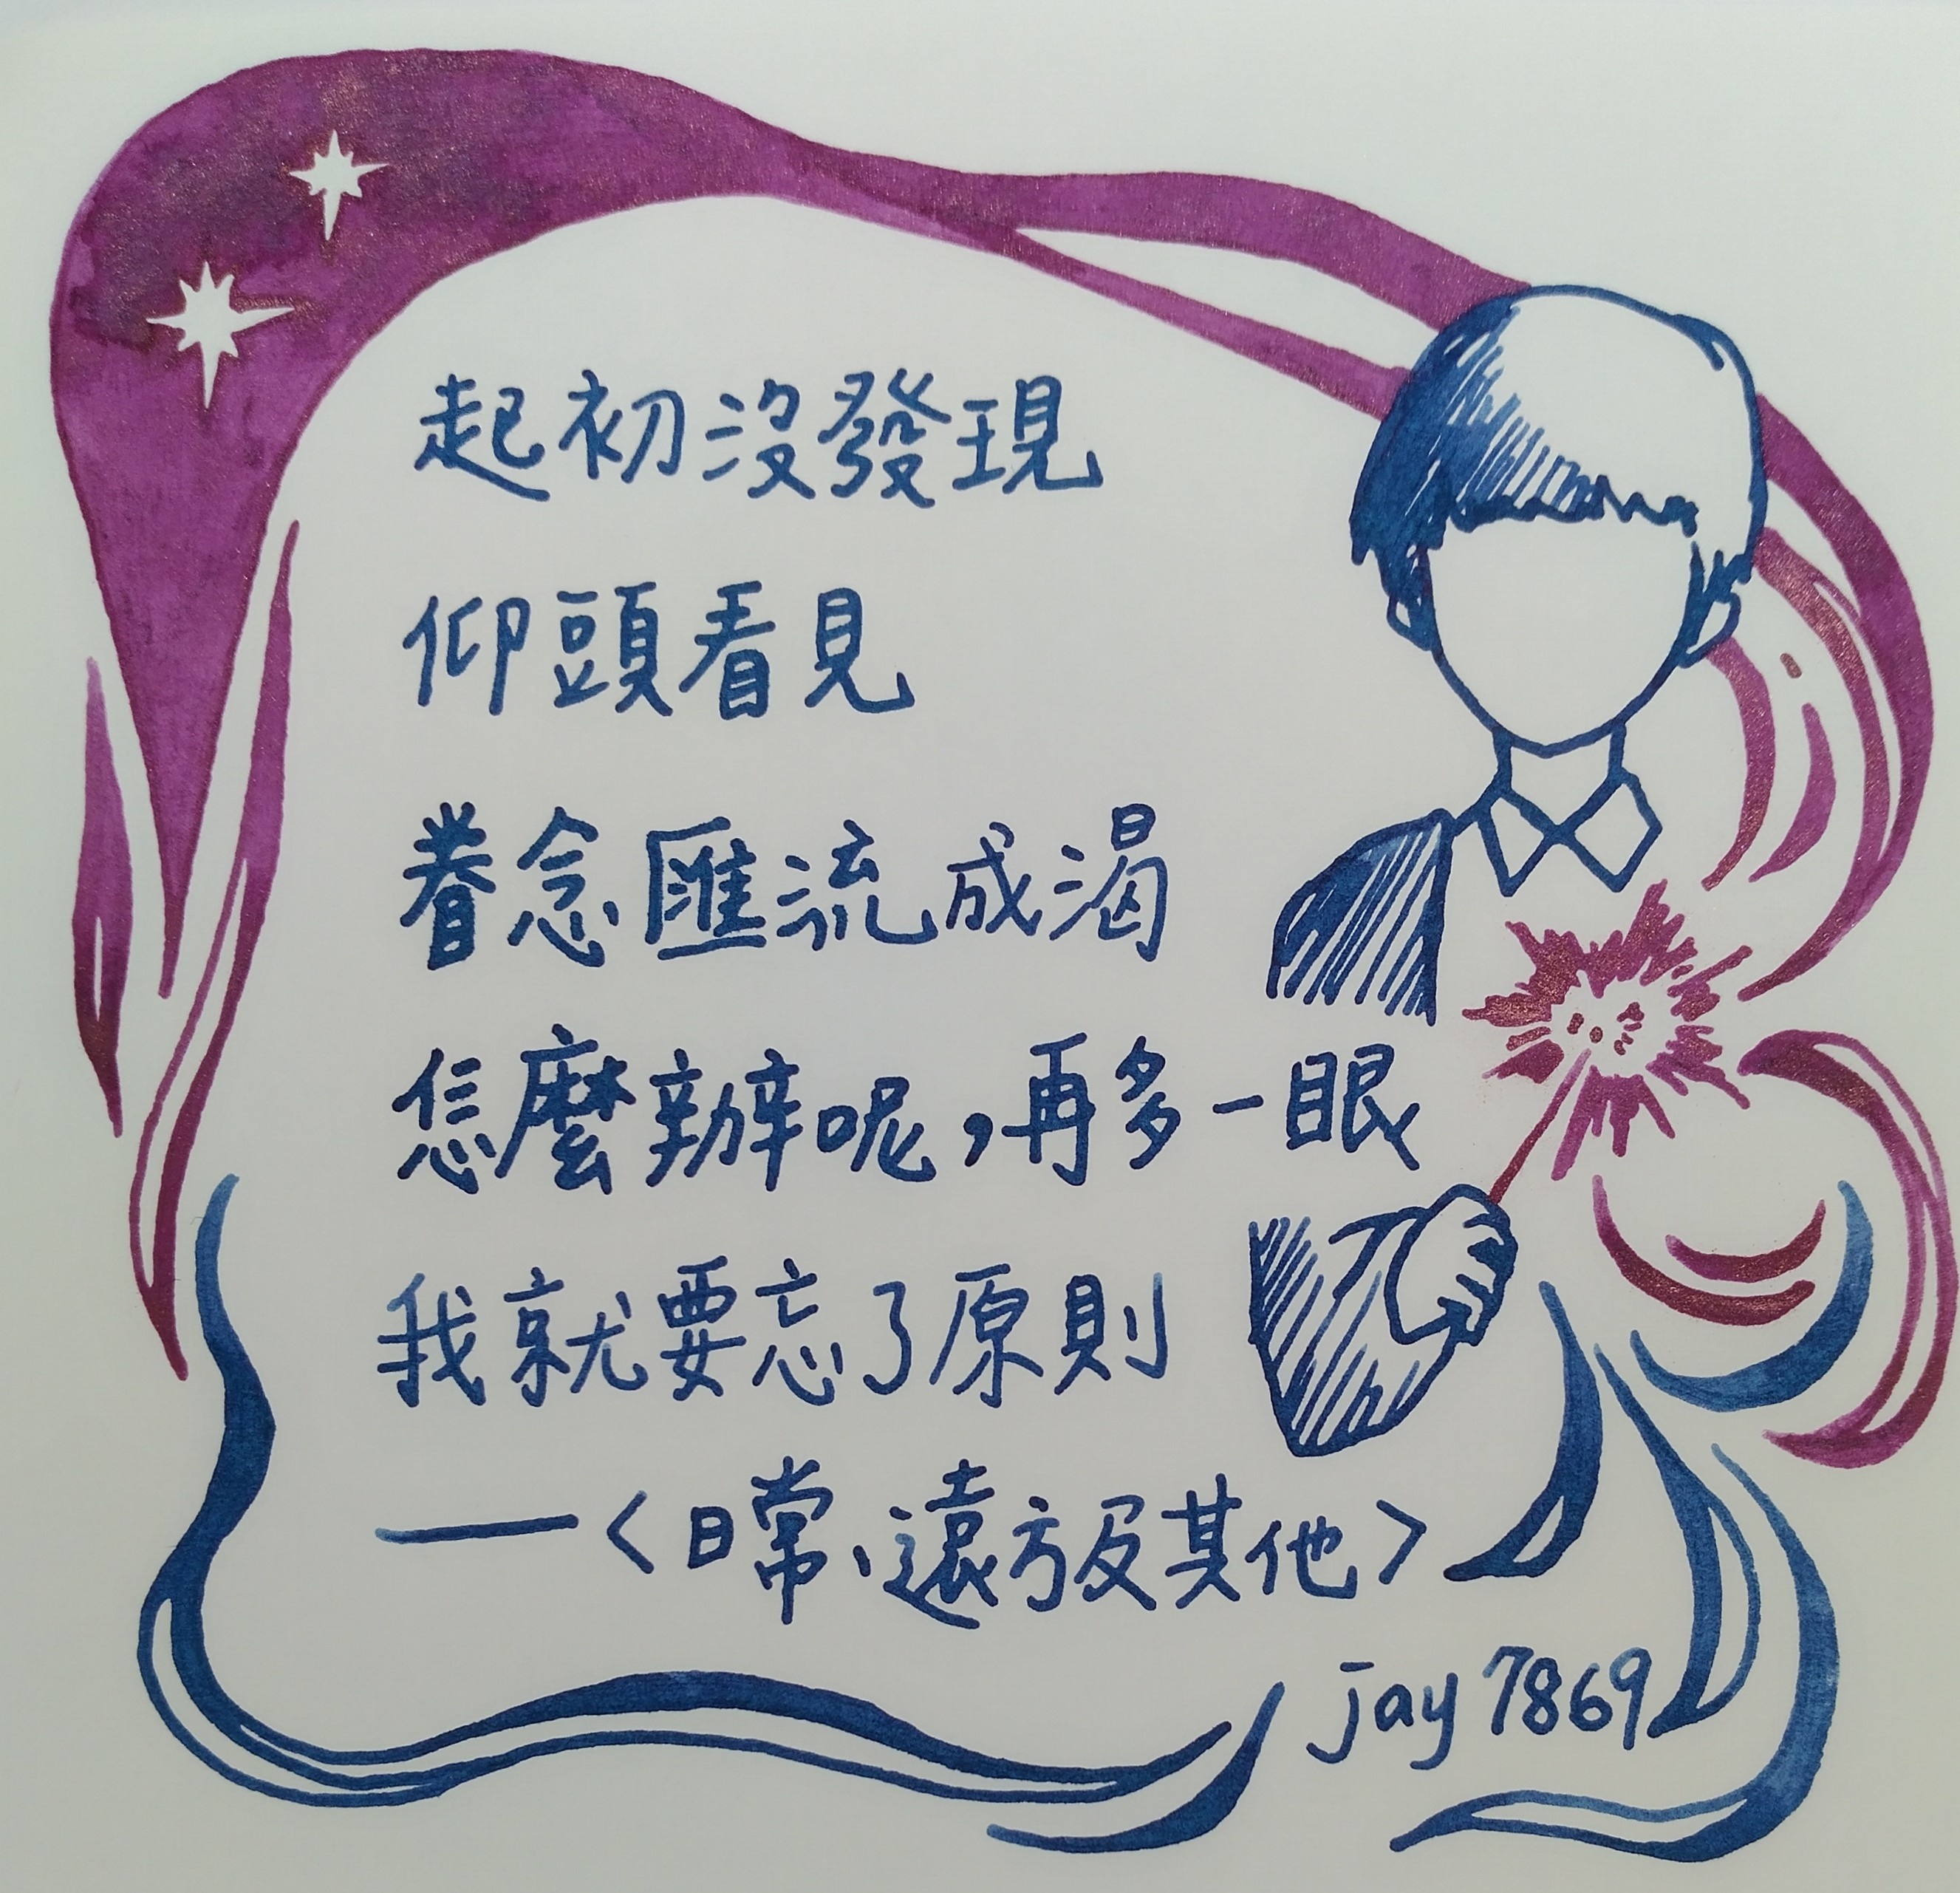 起初沒發現
仰頭看見
眷念匯流成渴
怎麼辦呢，再多一眼
我就要忘了原則
——〈日常、遠方及其他〉
jay 7869